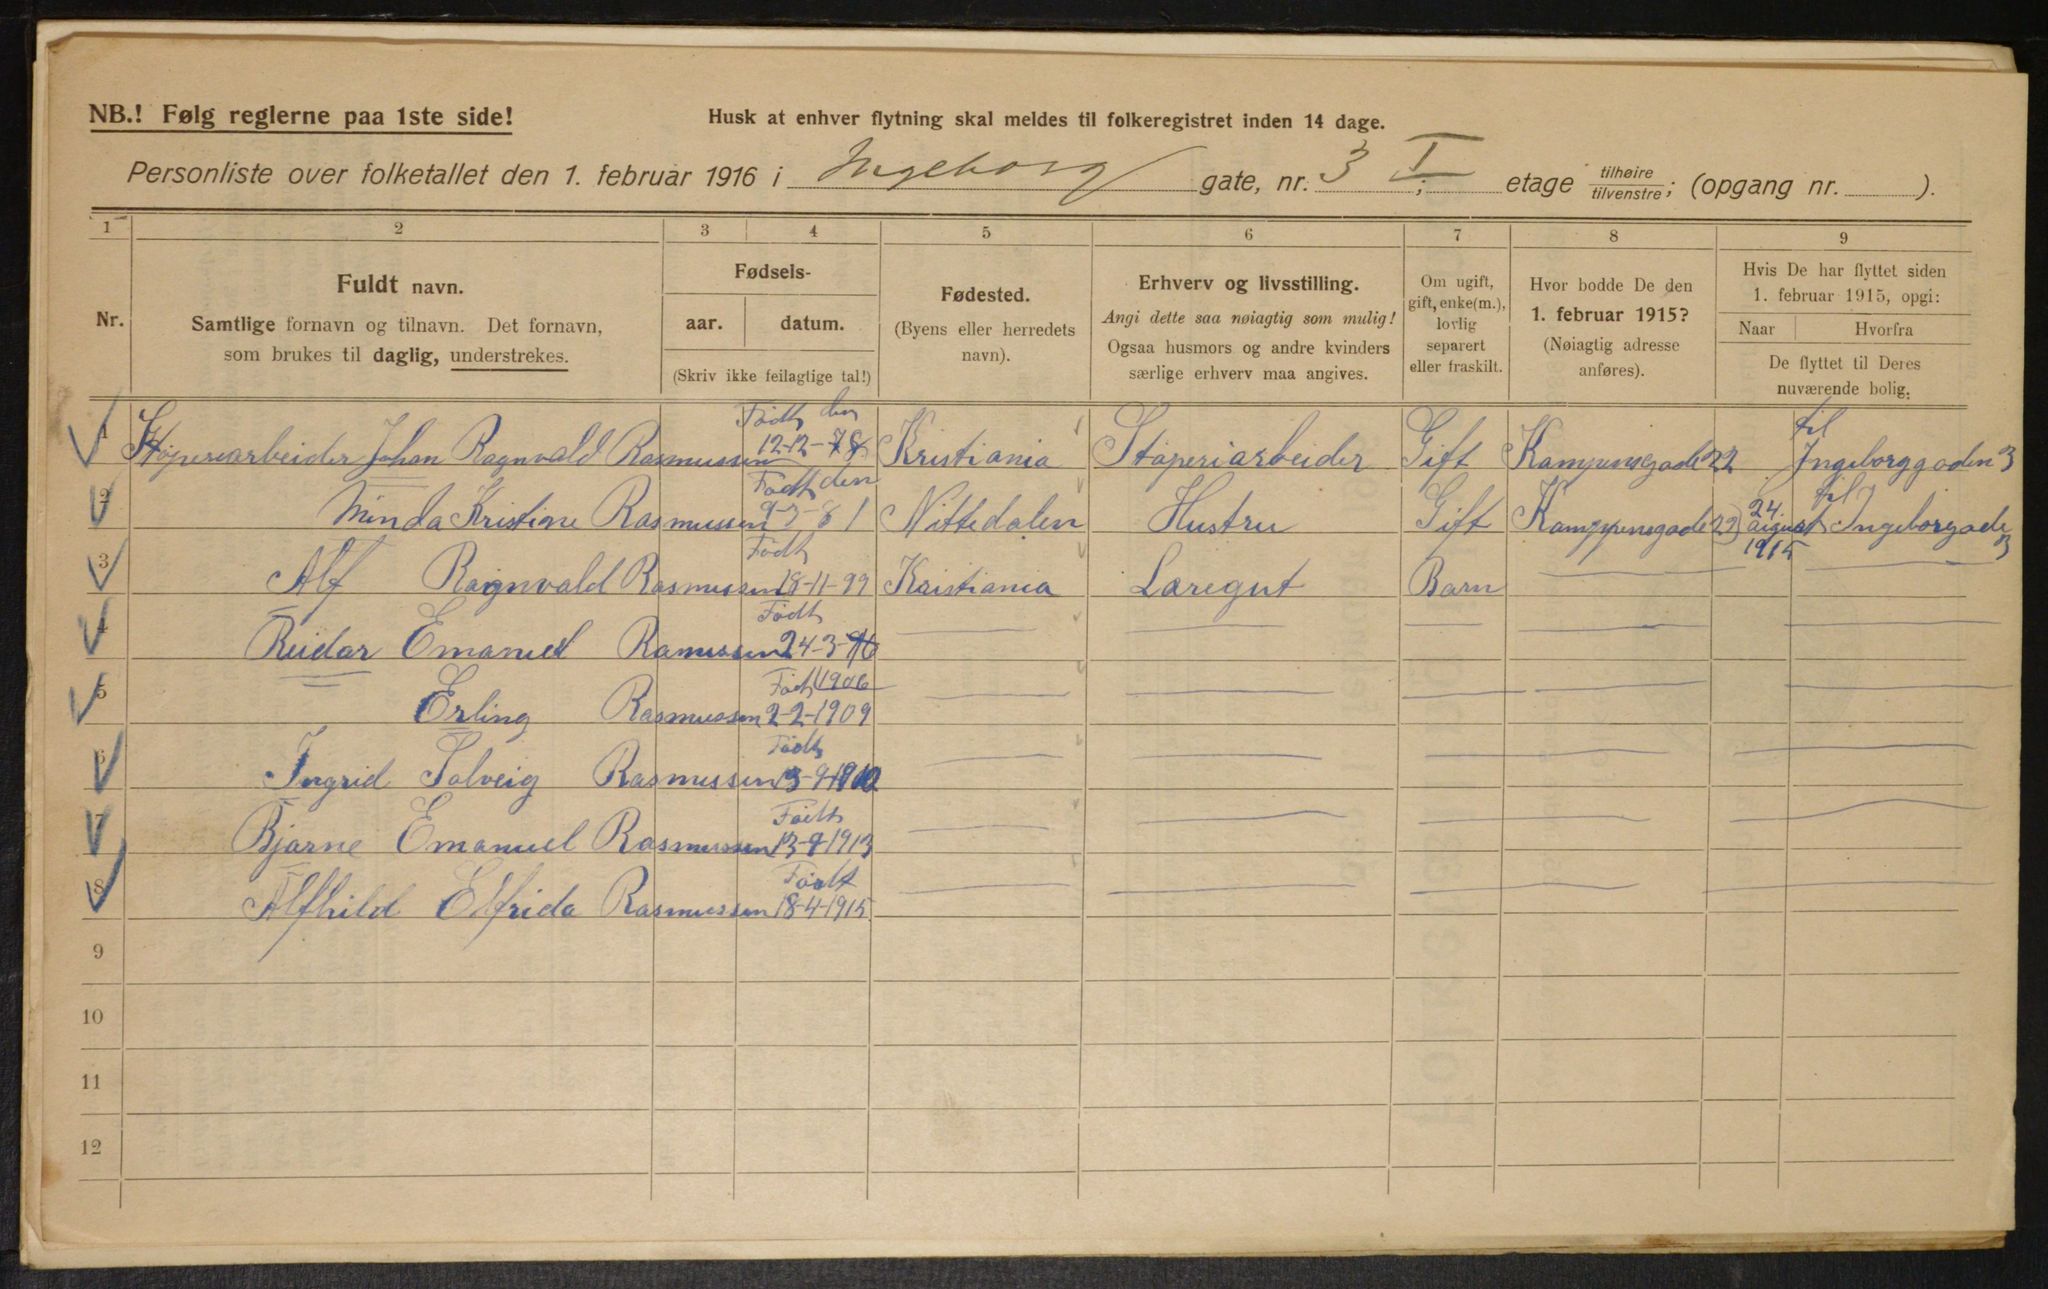 NB.! Følg reglerne paa 1ste side!
Husk at enhver flytning skal meldes til folkeregistret inden 14 dage.
Personliste over folketallet den 1. februar 1916 i Ingeborg gate, nr. 3 ; I etage tilhøire/tilvenstre; (opgang nr. ).
1 2 3 4 5 6 7 8 9
Nr.
Fuldt navn.
Samtlige fornavn og tilnavn. Det fornavn,
som brukes til daglig, understrekes.
Fødsels-
aar. datum.
(Skriv ikke feilagtige tal!)
Fødested.
(Byens eller herredets
navn).
Erhverv og livsstilling.
Angi dette saa nøiagtig som mulig!
Ogsaa husmors og andre kvinders
særlige erhverv maa angives.
Om ugift,
gift, enke(m.),
lovlig
separert
eller fraskilt.
Hvor bodde De den
1. februar 1915?
(Nøiagtig adresse
anføres).
Hvis De har flyttet siden
1. februar 1915, opgi:
Naar Hvorfra
De flyttet til Deres
nuværende bolig.
1 Støperiarbeider Johan Ragnvald Rasmussen Født den 12-12-78 Kristiania Støperiarbeider Gift Kampensgade 22 til Ingeborggaden 3
2 Minda Kristine Rasmussen Født den 9-3-81 Nittedalen Hustru Gift Kamppensgade 22 24. august 1915 til Ingeborgade 3
3 Alf Ragnvald Rasmussen Født 18-11-99 Kristiania Laregut Barn
4 Reidar Emanuel Rasmussen Født 24-3-
1906
5 Erling Rasmussen Født 2-2-1909
6 Ingrid Solveig Rasmussen Født
7 Bjarne Emanuel Rasmussen Født 13-9-1913
8 Alfhild Elfrida Rasmussen Født 18-4-1915
9
10
11
12